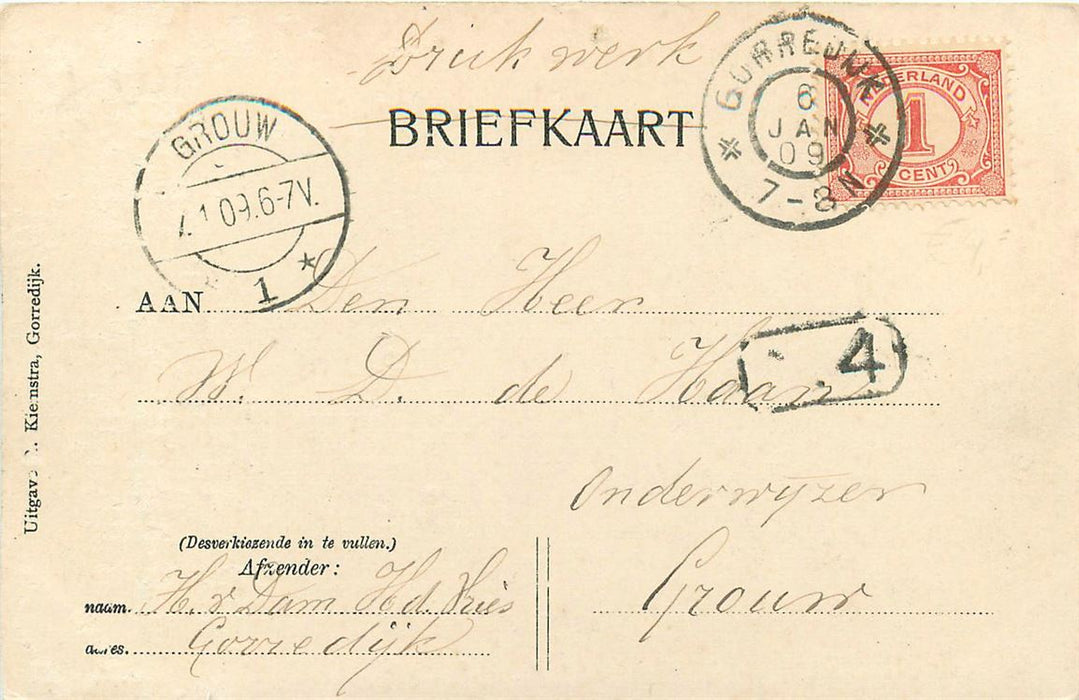 Drukwerk
BRIEFKAART
GORREDIJK
6
JAN
09
7-8N
NEDERLAND
1
CENT
GROUW
7.1 09.6-7V.
1
AAN Den Heer
W. D. de Haan
4
Onderwijzer
Grouw
(Desverkiezende in te vullen.)
Afzender:
naam. H. v Dam H. d. Vries
adres. Gorredijk
Uitgave Kiemstra, Gorredijk.